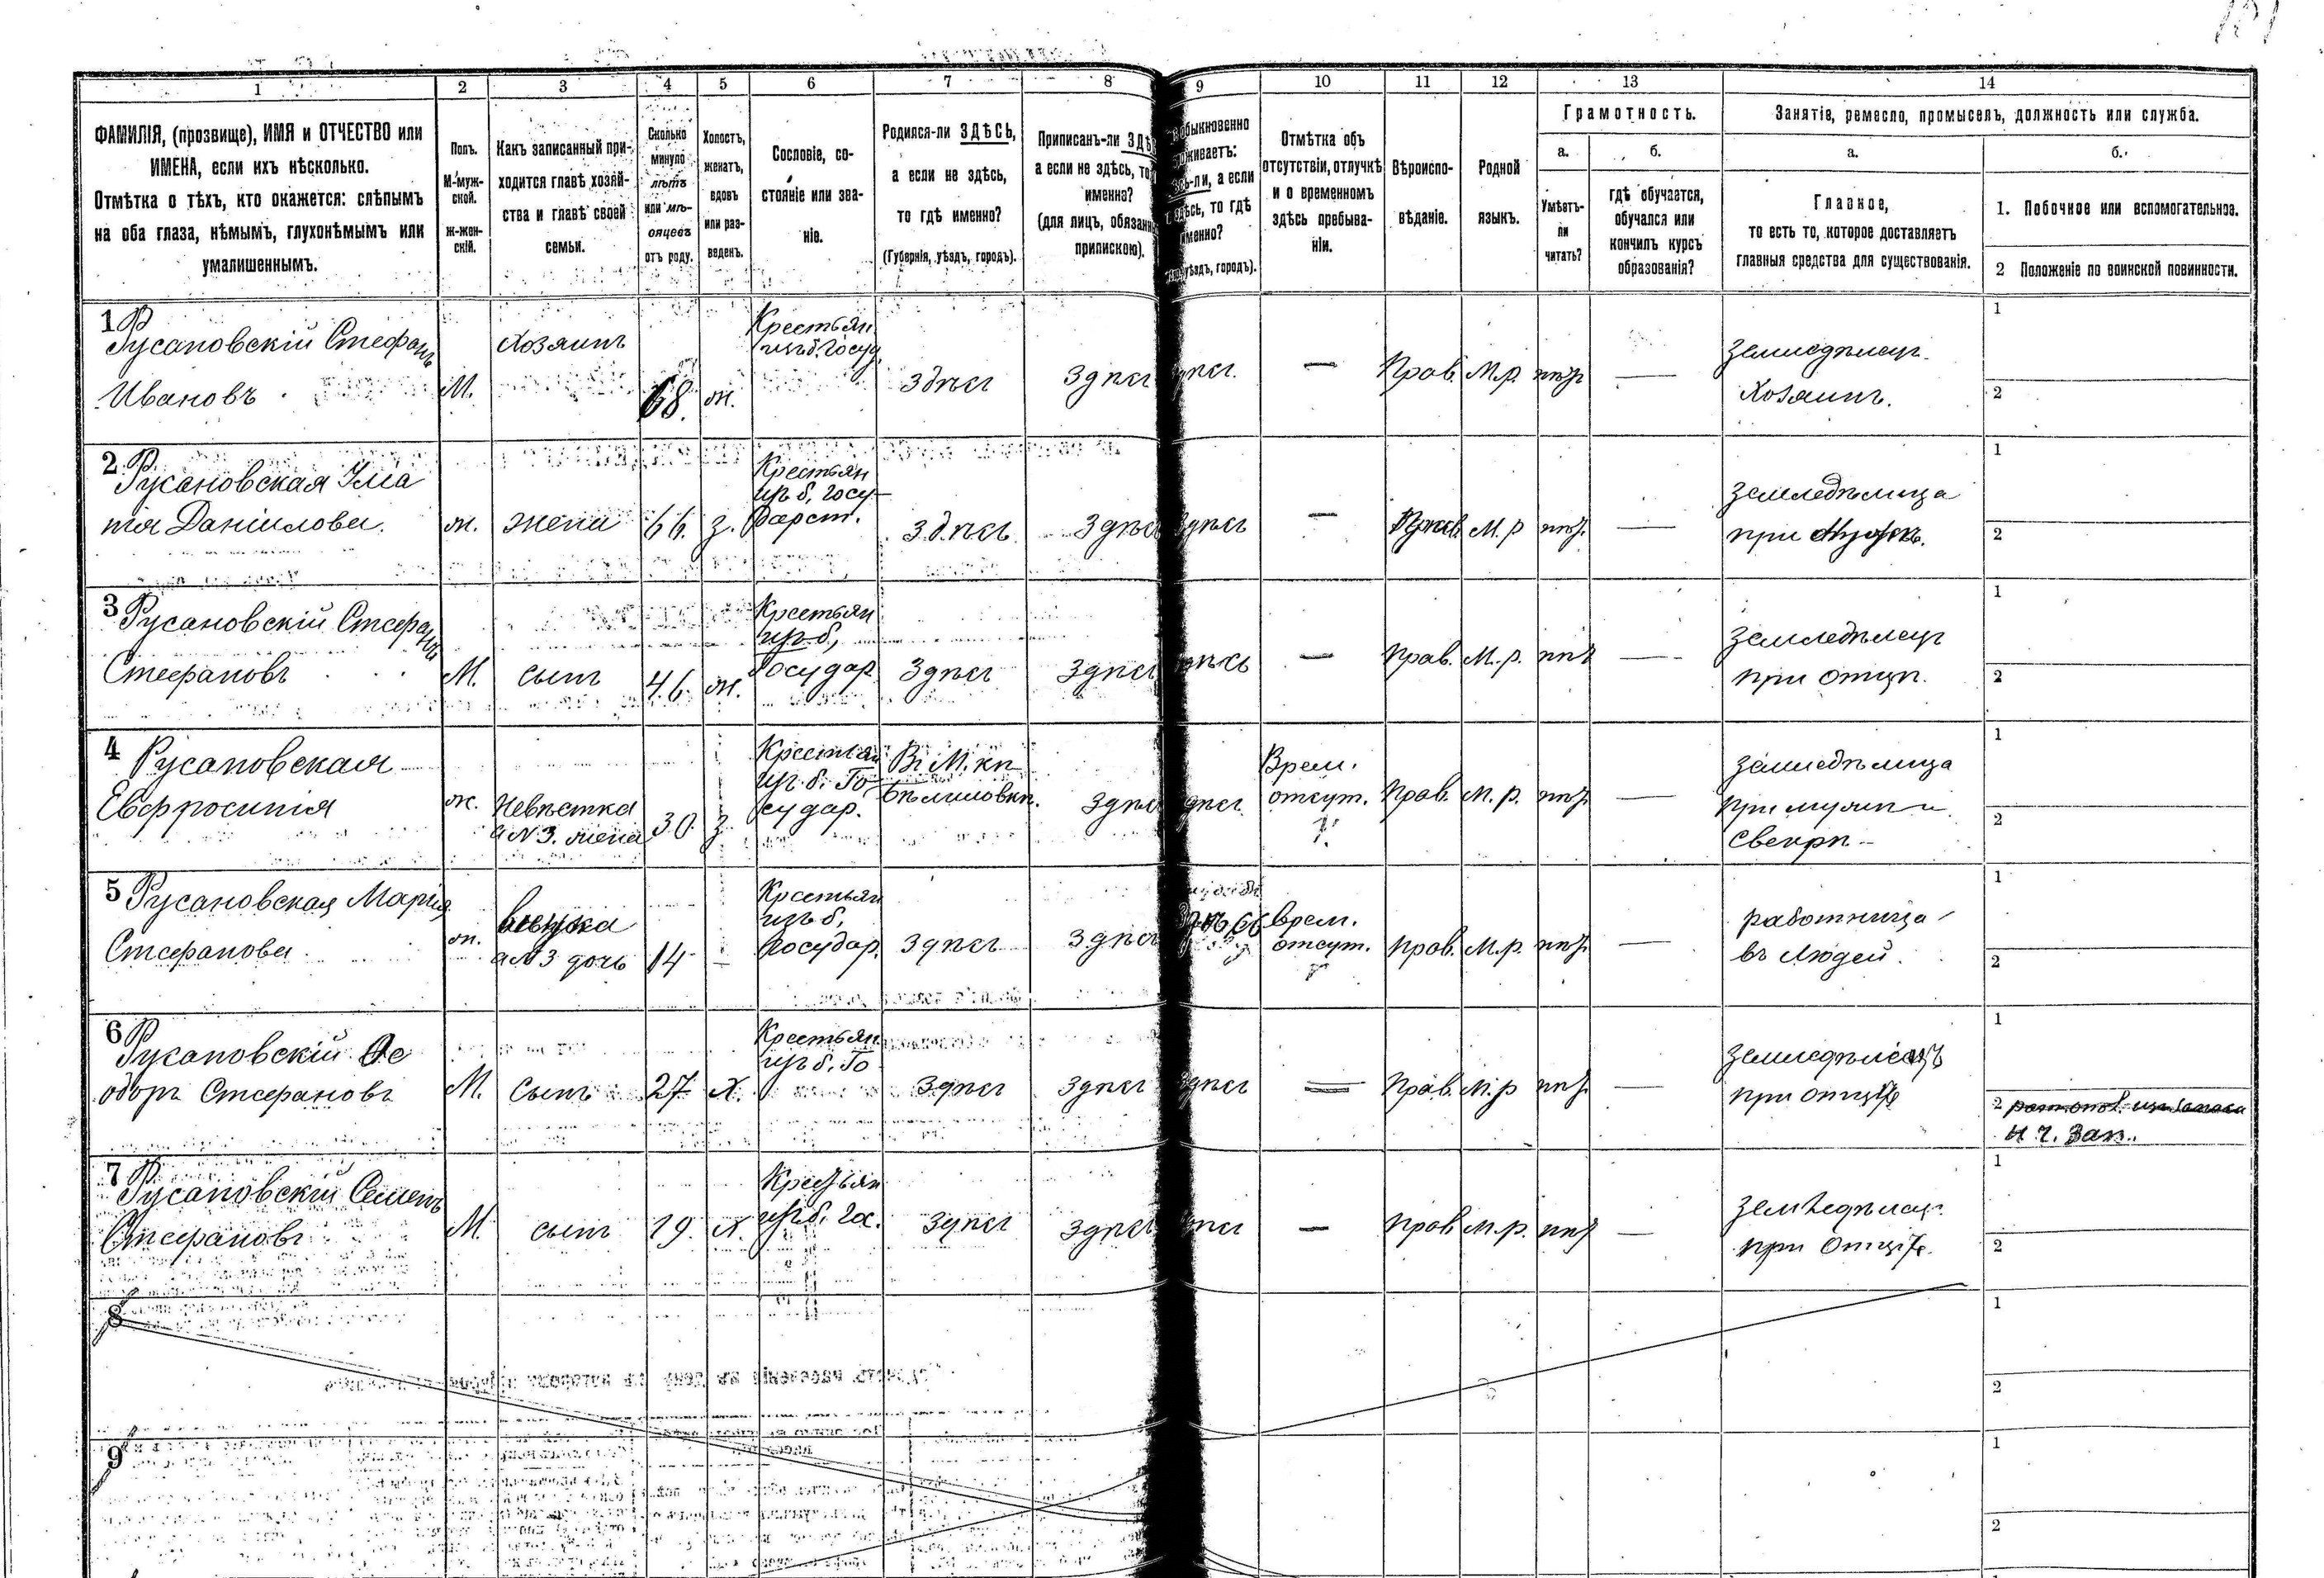 1 2 3 4 5 6 7 8 9 10 11 12 13 14
ФАМИЛІЯ, (прозвище), ИМЯ и ОТЧЕСТВО или
ИМЕНА, если ихъ нѣсколько.
Отмѣтка о тѣхъ, кто окажется: слѣпымъ
на оба глаза, нѣмымъ, глухонѣмымъ или
умалишеннымъ.
Полъ.
М-муж-
ской.
ж-жен-
скій.
Какъ записанный при-
ходится главѣ хозяй-
ства и главѣ своей
семьи.
Сколько
минуло
лѣтъ
или мѣ-
сяцевъ
отъ роду.
Холостъ,
женатъ,
вдовъ
или раз-
веденъ.
Сословіе, со-
стояніе или зва-
ніе.
Родился-ли ЗДѢСЬ,
а если не здѣсь,
то гдѣ именно?
(Губернія, уѣздъ, городъ).
Приписанъ-ли
а если не здѣсь,
именно?
(для лицъ,
припискою).
а если
то гдѣ
уѣздъ, городъ).
Отмѣтка объ
отсутствіи, отлучкѣ
и о временномъ
здѣсь пребыва-
ніи.
Вѣроиспо-
вѣданіе.
Родной
языкъ.
Грамотность.
а.
Умѣетъ-
ли
читать?
б.
гдѣ обучается,
обучался или
кончилъ курсъ
образованія?
Занятіе, ремесло, промыселъ, должность или служба.
а.
Главное,
то есть то, которое доставляетъ
главныя средства для существованія.
б.
1. Побочное или вспомогательное.
2 Положеніе по воинской повинности.
1 Русановскій Стефанъ
Ивановъ
М.
Хозяинъ
68.
ж.
Крестьян
изъ б. Госуд
здѣсь
здѣсь
—
Прав.
М.р.
нѣтъ
—
Земледѣлец.
Хозяинъ.
1
2
2 Русановская
Даніилова.
ж.
жена
66.
з.
Крестьян
изъ б. госу-
дарст.
здѣсь
—
М.р
нѣт.
—
Земледѣлица
при
1
2
3 Русановскій Стефанъ
Стефановъ
М.
сынъ
46
ж.
Крестьян
изъ б,
Государ
здѣсь
—
Прав.
М.р.
нѣт
—
Земледѣлец
при отцѣ.
1
2
4 Русановская
Евфросинія
ж.
Невѣстка
а N3. жена
30.
з
Крестьян
изъ б. Го
судар.
Въ М.
Врем.
отсут.
Прав.
М. р.
нѣт.
—
Земледѣлица
при мужѣ и
свекрѣ
1
2
5 Русановская Марія
Стефанова
ж.
внучка
а N3 дочь
14
—
Крестьян
изъ б.
Государ.
здѣсь
Врем.
отсут.
Прав.
М.р.
нѣт.
—
работница
въ людей.
1
2
6 Русановскій Ѳе
одоръ Стефановъ
М.
Сынъ
27
х.
Крестьян
изъ б. Го
здѣсь
здѣсь
—
Прав.
М.р
нѣт.
—
Земледѣлецъ
при отцѣ
1
2
Н. Ч. Зап.
7 Русановскій Семенъ
Стефановъ
М.
сынъ
19.
х.
Крестьян
изъ б. Гос.
здѣсь
здѣсь
—
Прав
М.р.
нѣт
—
Земледѣлец.
при отцѣ.
1
2
8
1
2
9
1
2